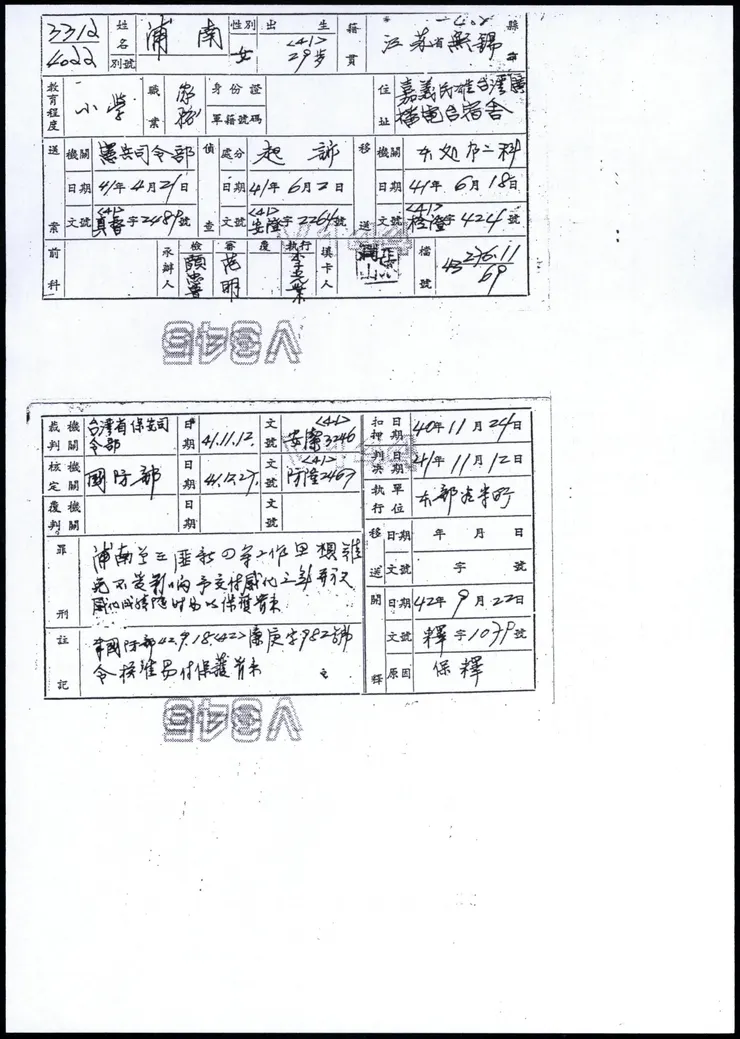 3312
4022
姓名 浦南 別號
性別 女
出生 <41> 29歲
籍貫 江苏省無錫 縣市
教育程度 小學
職業 家務
身份證
軍籍號碼
住址 嘉義民雄台湾廣播電台宿舍
送案 機關 憲兵司令部
日期 41年4月21日
文號 <41> 真督字2489號
偵查 處分 起訴
日期 41年6月2日
文號 <41> 安澄字2264號
移送 機關 本处
日期 41年6月18日
文號 <41> 字424號
前科
承辦人 檢 審 范明 覆 執行 李
填卡人
檔號 43 276.11
69
V345
裁判 機關 台灣省保安司令部
日期 41.11.12.
文號 <41> 安潔3246
核定 機關 國防部
日期 41.12.27.
文號 <41> 防澄2467
覆判 機關
日期
文號
扣押 日期 40年11月24日
判決 日期 41年11月12日
執行 單位 本部
移送 日期 年 月 日
文號 字 號
開釋 日期 42年9月22日
文號 釋字1079號
原因 保釋
罪刑 浦南 匪 工作 思想
予交付感化三年
感化 保護管束
註記 國防部42.9.18.<42>廉庚字982號
令核准另付保護管束
V345